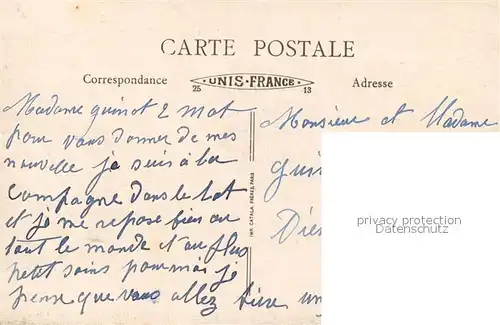 CARTE POSTALE
Correspondance
UNIS-FRANCE
25
13
Adresse
Madame guinot 2 mot
pour vous donner de mes
nouvelle je suis à la
Compagne dans le lot
et je me repose bien
tout le monde et au plus
petit soins pour moi je
pense que vous allez bien
Monsieur et Madame
IMP. CATALA FRÈRES, PARIS
privacy protection
Datenschutz